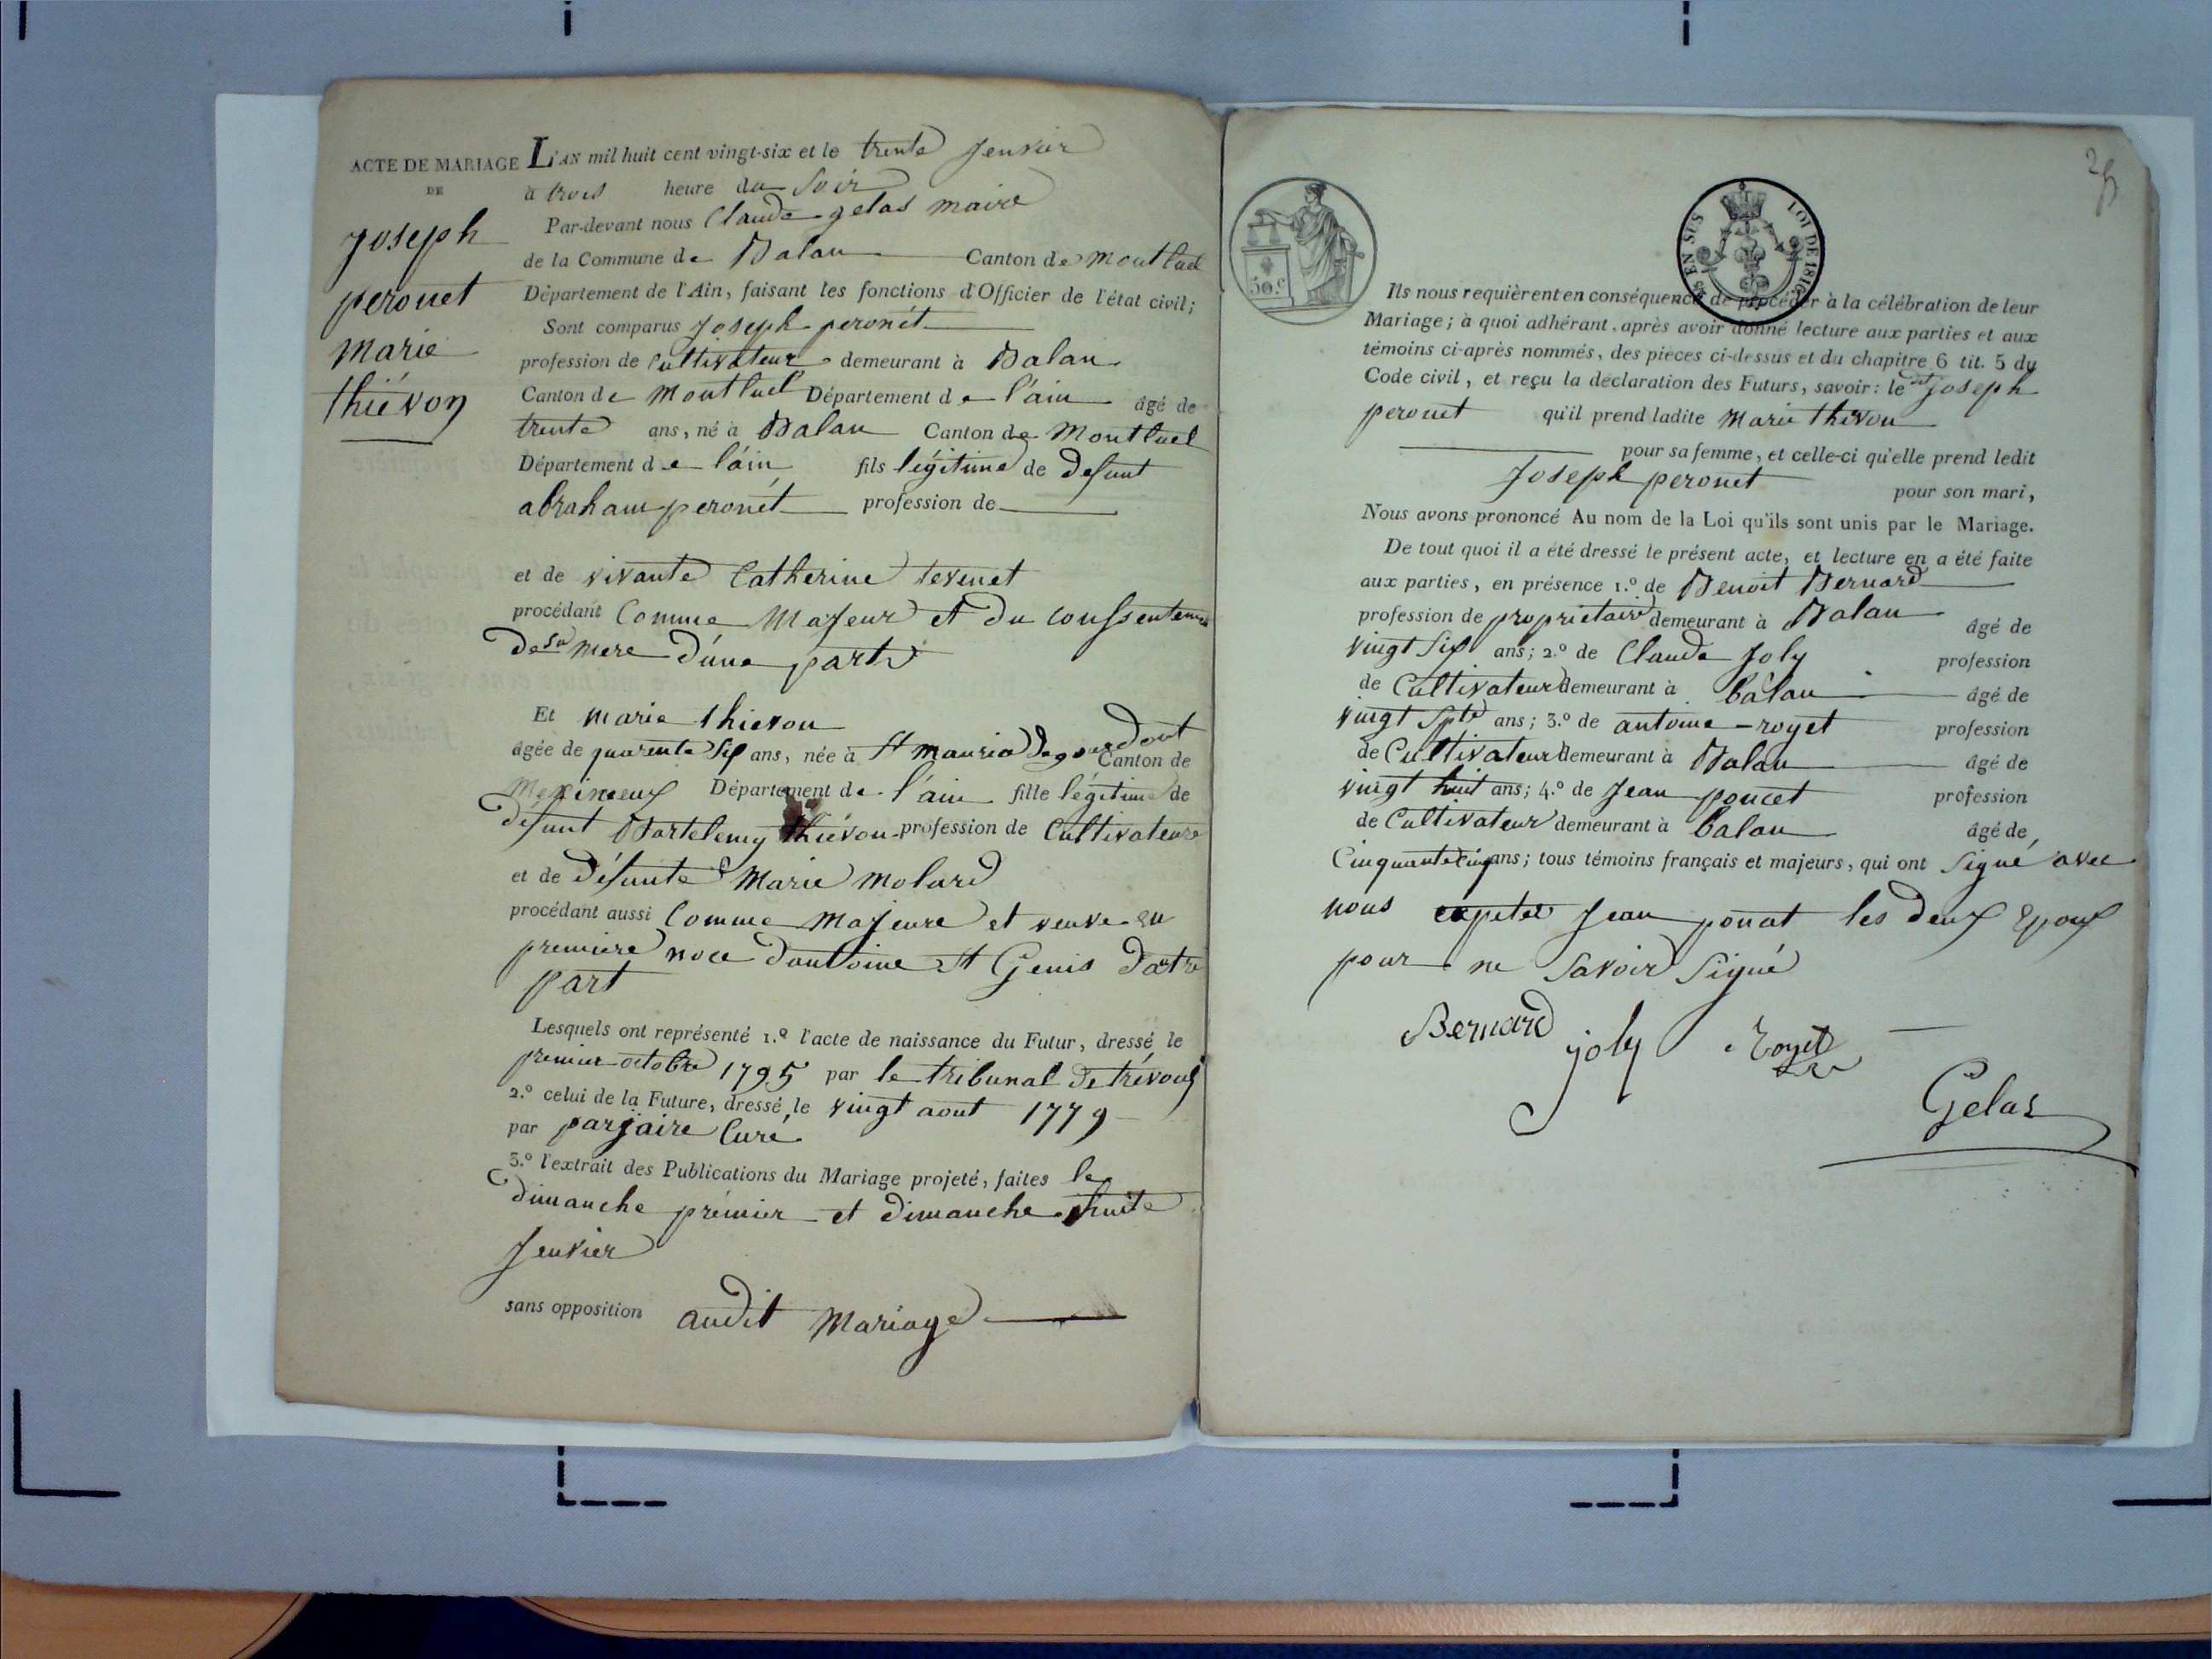 ACTE DE MARIAGE
DE
Joseph
peronet
Marie
thiévon
L'AN mil huit cent vingt-six et le trente Jenvier
à trois heure du Soir
Par-devant nous Claude gelas maire
de la Commune de Balan Canton de Montluel
Département de l'Ain, faisant les fonctions d'Officier de l'état civil;
Sont comparus Joseph peronét
profession de Cultivateur demeurant à Balan
Canton de Montluel Département de l'áin âgé de
trente ans, né à Balan Canton de Montluel
Département de l'áin fils légitime de defunt
abraham peronét profession de
et de vivante Catherine tevenet
procédant Comme Majeur et du
de sa mere d'une part
Et Marie thievon
âgée de quarente Six ans, née à St mauric de gourdont Canton de
Meximieux Département de l'ain fille légitime de
défunt Bartelemy thiévon profession de Cultivateure
et de défunte Marie Molard
procédant aussi Comme Majeure et veuve en
premiere noce dantoine St Genis datre
part
Lesquels ont représenté 1.º l'acte de naissance du Futur, dressé le
premier octobre 1795 par le tribunal de trévoux
2.º celui de la Future, dressé le vingt aout 1779
par parjaire Curé
3.º l'extrait des Publications du Mariage projeté, faites le
dimanche prémier et dimanche huite
Jenvier
sans opposition audit Mariage
25
50.c
EN SUS LOI DE 1816
Ils nous requièrent en conséquence de procéder à la célébration de leur
Mariage; à quoi adhérant, après avoir donné lecture aux parties et aux
témoins ci-après nommés, des pièces ci-dessus et du chapitre 6 tit. 5 du
Code civil, et reçu la déclaration des Futurs, savoir: le dit Joseph
peronet qu'il prend ladite Marie thevon
pour sa femme, et celle-ci qu'elle prend ledit
Joseph peronet pour son mari,
Nous avons prononcé Au nom de la Loi qu'ils sont unis par le Mariage.
De tout quoi il a été dressé le présent acte, et lecture en a été faite
aux parties, en présence 1.º de Benoit Bernard
profession de proprietaire demeurant à Balan âgé de
vingt Six ans; 2.º de Claude Joly profession
de Cultivateur demeurant à balan âgé de
vingt Spte ans; 3.º de antoine royet profession
de Cultivateur demeurant à Balan âgé de
vingt huit ans; 4.º de Jean poncet profession
de Cultivateur demeurant à balan âgé de
Cinquante Cinq ans; tous témoins français et majeurs, qui ont Signé avec
nous Jean ponat les deux Epoux
pour ne Savoir Signé
Bernard joly Royet
Gelas